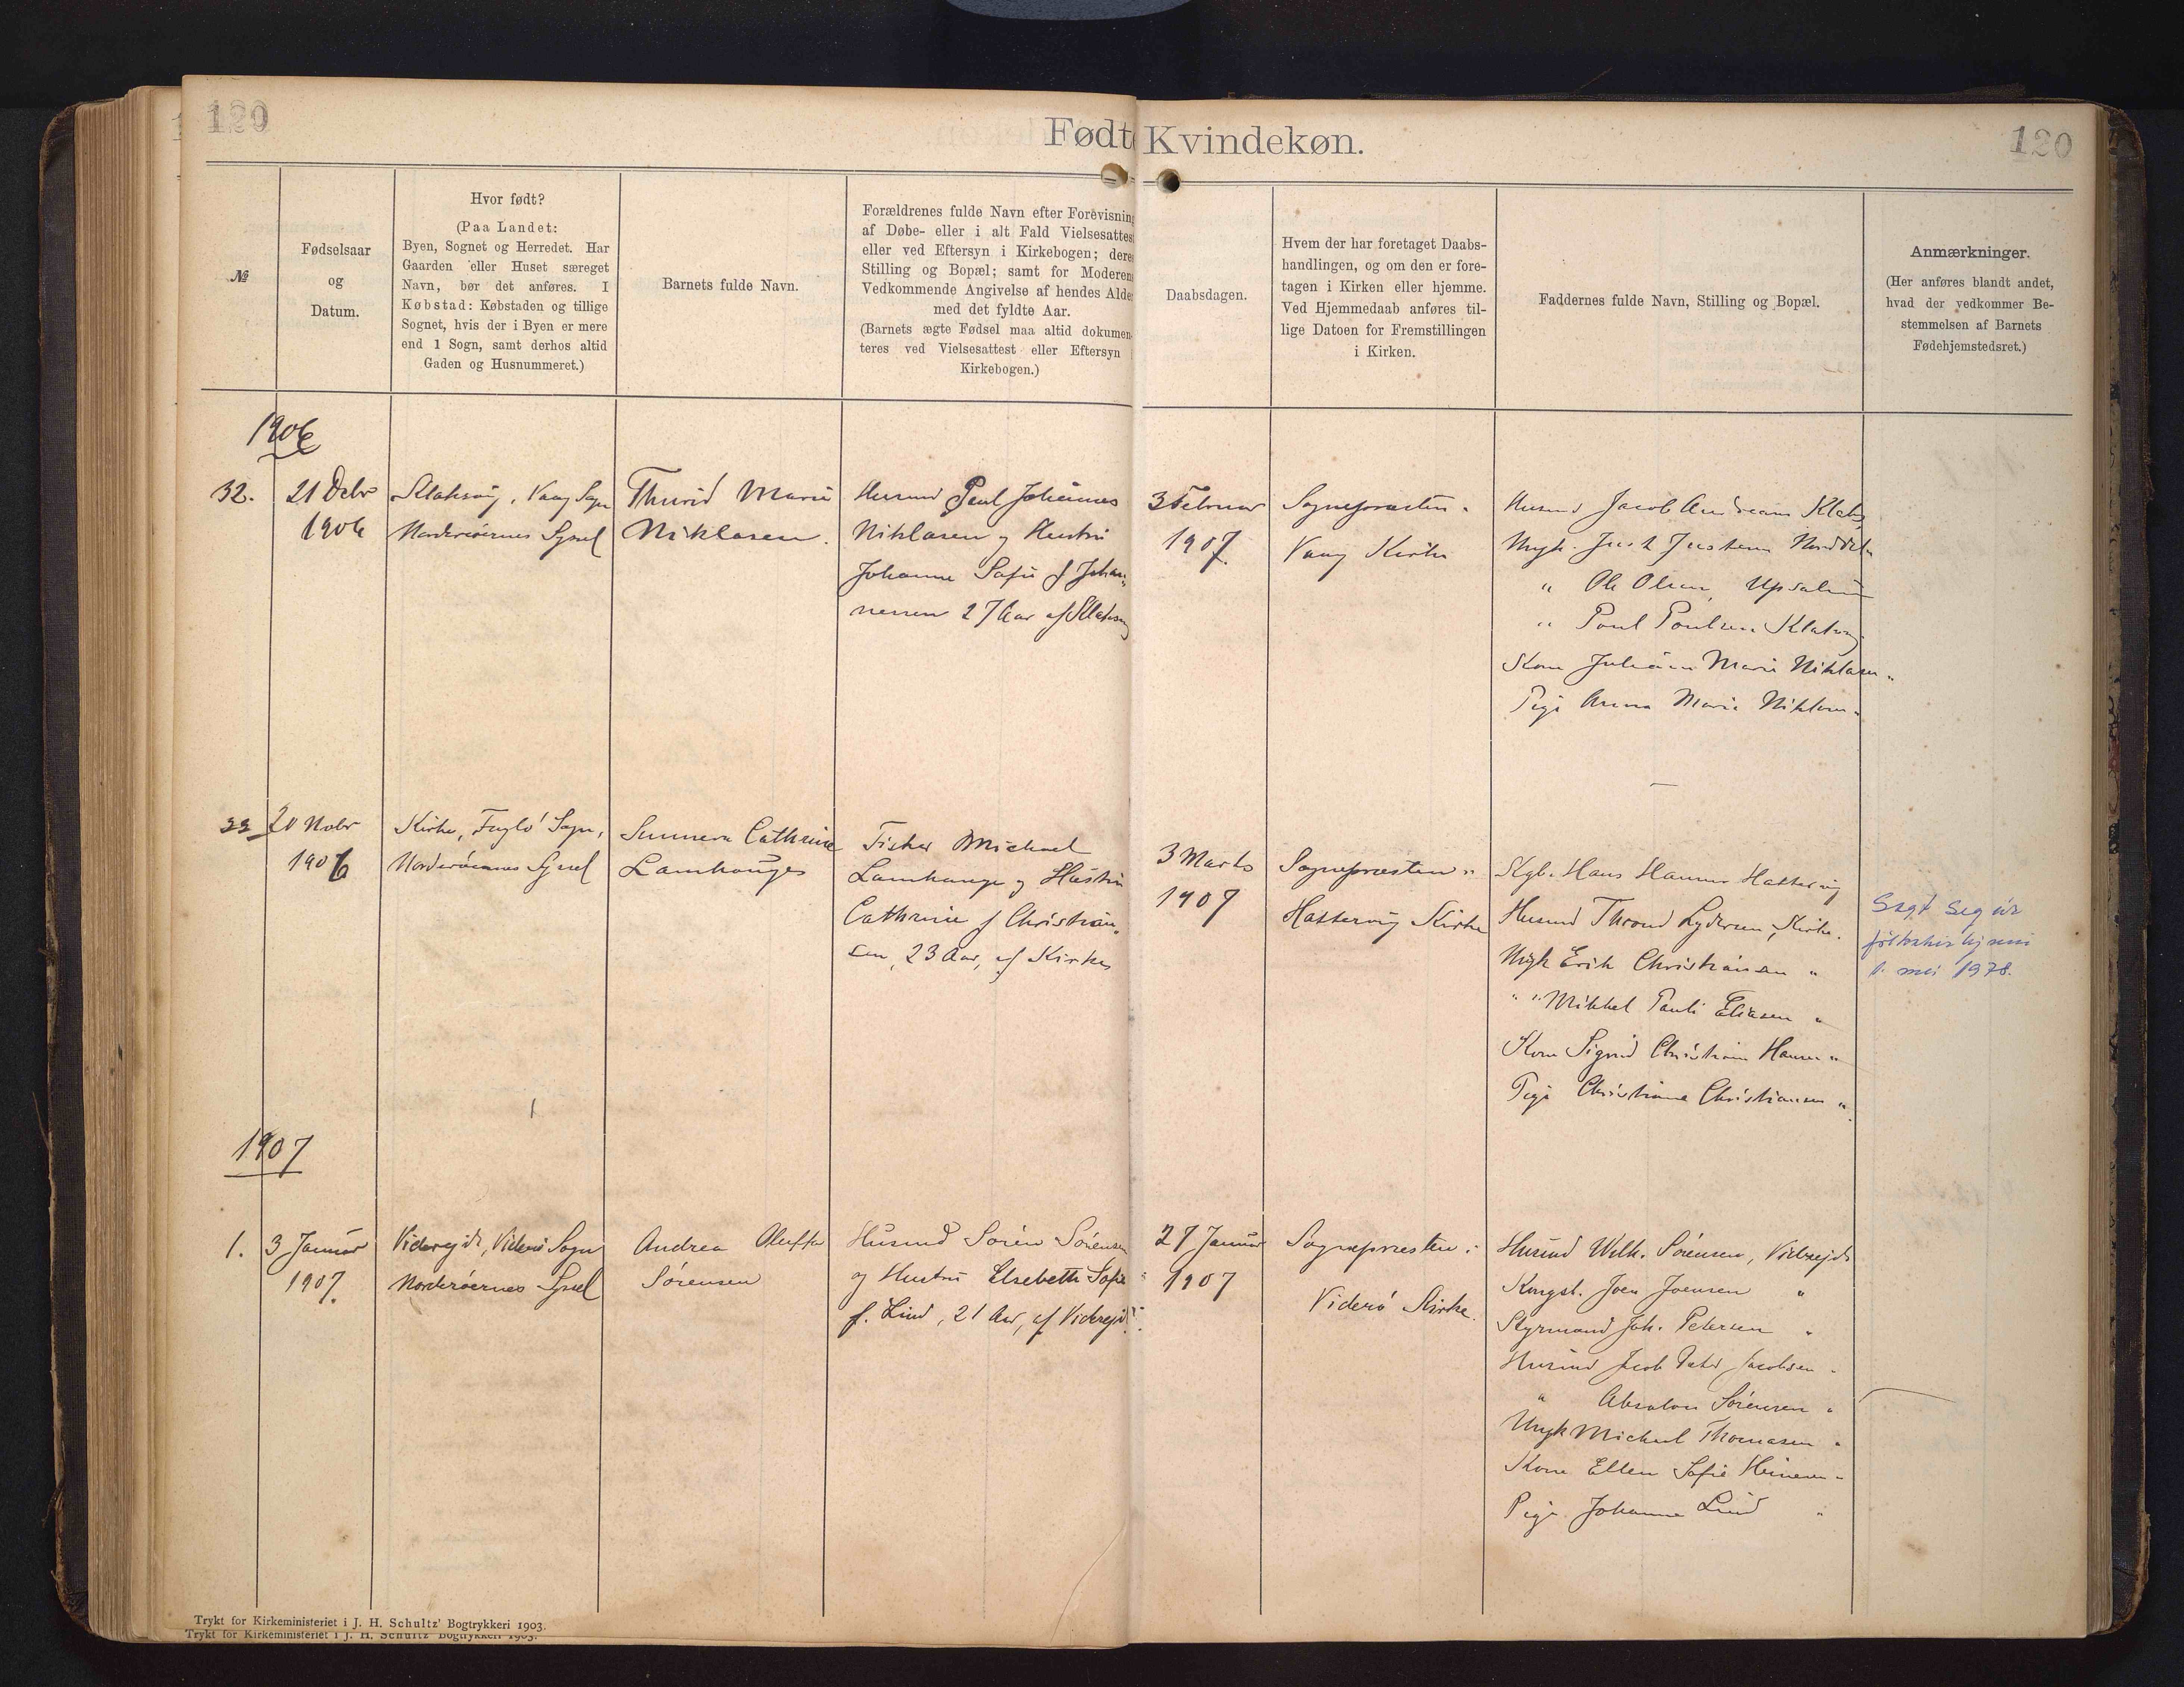 120
Fødte Kvindekøn.
120
№
Fødselsaar
og
Datum.
Hvor født?
(Paa Landet:
Byen, Sognet og Herredet. Har
Gaarden eller Huset særeget
Navn, bør det anføres. I
Købstad: Købstaden og tillige
Sognet, hvis der i Byen er mere
end 1 Sogn, samt derhos altid
Gaden og Husnummeret.)
Barnets fulde Navn.
Forældrenes fulde Navn efter Forevisning
af Døbe- eller i alt Fald Vielsesattest
eller ved Eftersyn i Kirkebogen; deres
Stilling og Bopæl; samt for Moderens
Vedkommende Angivelse af hendes Alder
med det fyldte Aar.
(Barnets ægte Fødsel maa altid dokumen-
teres ved Vielsesattest eller Eftersyn i
Kirkebogen.)
Daabsdagen.
Hvem der har foretaget Daabs-
handlingen, og om den er fore-
tagen i Kirken eller hjemme.
Ved Hjemmedaab anføres til-
lige Datoen for Fremstillingen
i Kirken.
Faddernes fulde Navn, Stilling og Bopæl.
Anmærkninger.
(Her anføres blandt andet,
hvad der vedkommer Be-
stemmelsen af Barnets
Fødehjemstedsret.)
1906
32.
21 Debr
1906
Klaksvig, Vaag Sogn
Norderøernes Syssel
Thurid Marie
Niklasen.
Husmd Poul Johannes
Niklasen og Hustru
Johanne Sofie f Johan-
nesen 27 Aar af Klaksvig
3 Februar
1907.
Sognepræsten.
Vaag Kirke
Husmd Jacob Andreas Klaksv
Ungk. Just Justsen Norddeble
" Ole Olsen, Upsalum
" Poul Poulsen Klaksvig
Kone Juliane Marie Niklasen "
Pige Anna Marie Niklasen "
33
20 Nobr
1906
Kirke, Fuglø Sogn,
Norderøernes Syssel
Sunneva Cathrine
Lamhauge
Fisker Michael
Lamhauge og Hustru
Cathrine f Christian-
sen, 23 Aar, af Kirke
3 Marts
1907
Sognepræsten "
Hattervig Kirke
Kgb. Hans Hansen Hattervig
Husmd Thrond Lydersen, Kirke.
Ungk Erik Christiansen "
" " Mikkel Pauli Eliasen "
Kone Sigrid Christiane Hansen "
Pige Christiane Christiansen "
Sagt seg úr
fólkakirkjuni
1. mei 1978.
1907
1.
3 Januar
1907.
Viderejde, Viderø Sogn
Norderøernes Syssel
Andrea Oluffa
Sørensen
Husmd Sørin Sørensen
og Hustru Elsebeth Sofie
f. Lind, 21 Aar, af Viderejde.
27 Januar
1907
Sognepræsten i
Viderø Kirke.
Husmd Wilh. Sørensen, Viderejde
Kongsb. Joen Joensen "
Styrmand Joh. Petersen "
Husmd Jacob Peter Jacobsen "
" Absalon Sørensen "
Ungk Michael Thomasen "
Kone Ellen Sofie Heinesen "
Pige Johanne Lind "
Trykt for Kirkeministeriet i J. H. Schultz' Bogtrykkeri 1903.
Trykt for Kirkeministeriet i J. H. Schultz' Bogtrykkeri 1903.